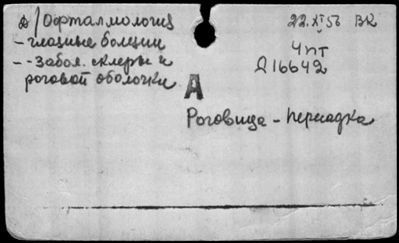 в/Офталмология
22.XI 56 ВК
- глазные болезни
- - Забол. склеры и
роговой оболочки
Чпт
Д16642
А
Роговица - пересадка